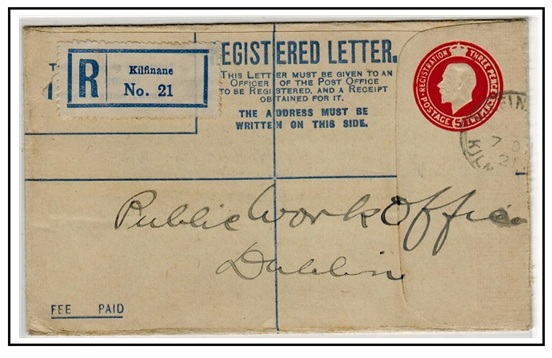 R
Kilfinane
No. 21
EGISTERED LETTER.
THIS LETTER MUST BE GIVEN TO AN
OFFICER OF THE POST OFFICE
TO BE REGISTERED, AND A RECEIPT
OBTAINED FOR IT.
THE ADDRESS MUST BE
WRITTEN ON THIS SIDE.
REGISTRATION THREE PENCE
POSTAGE
7
21
Public Work Office
Dublin
FEE PAID